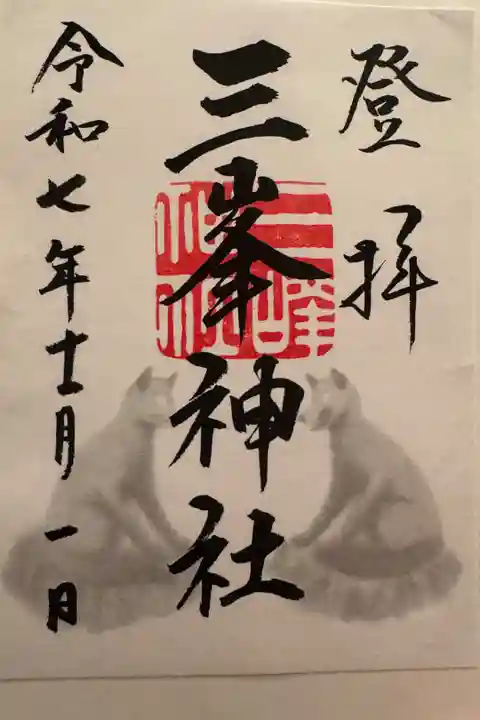 登拝
三峯神社
三峰神社
令和七年十二月一日